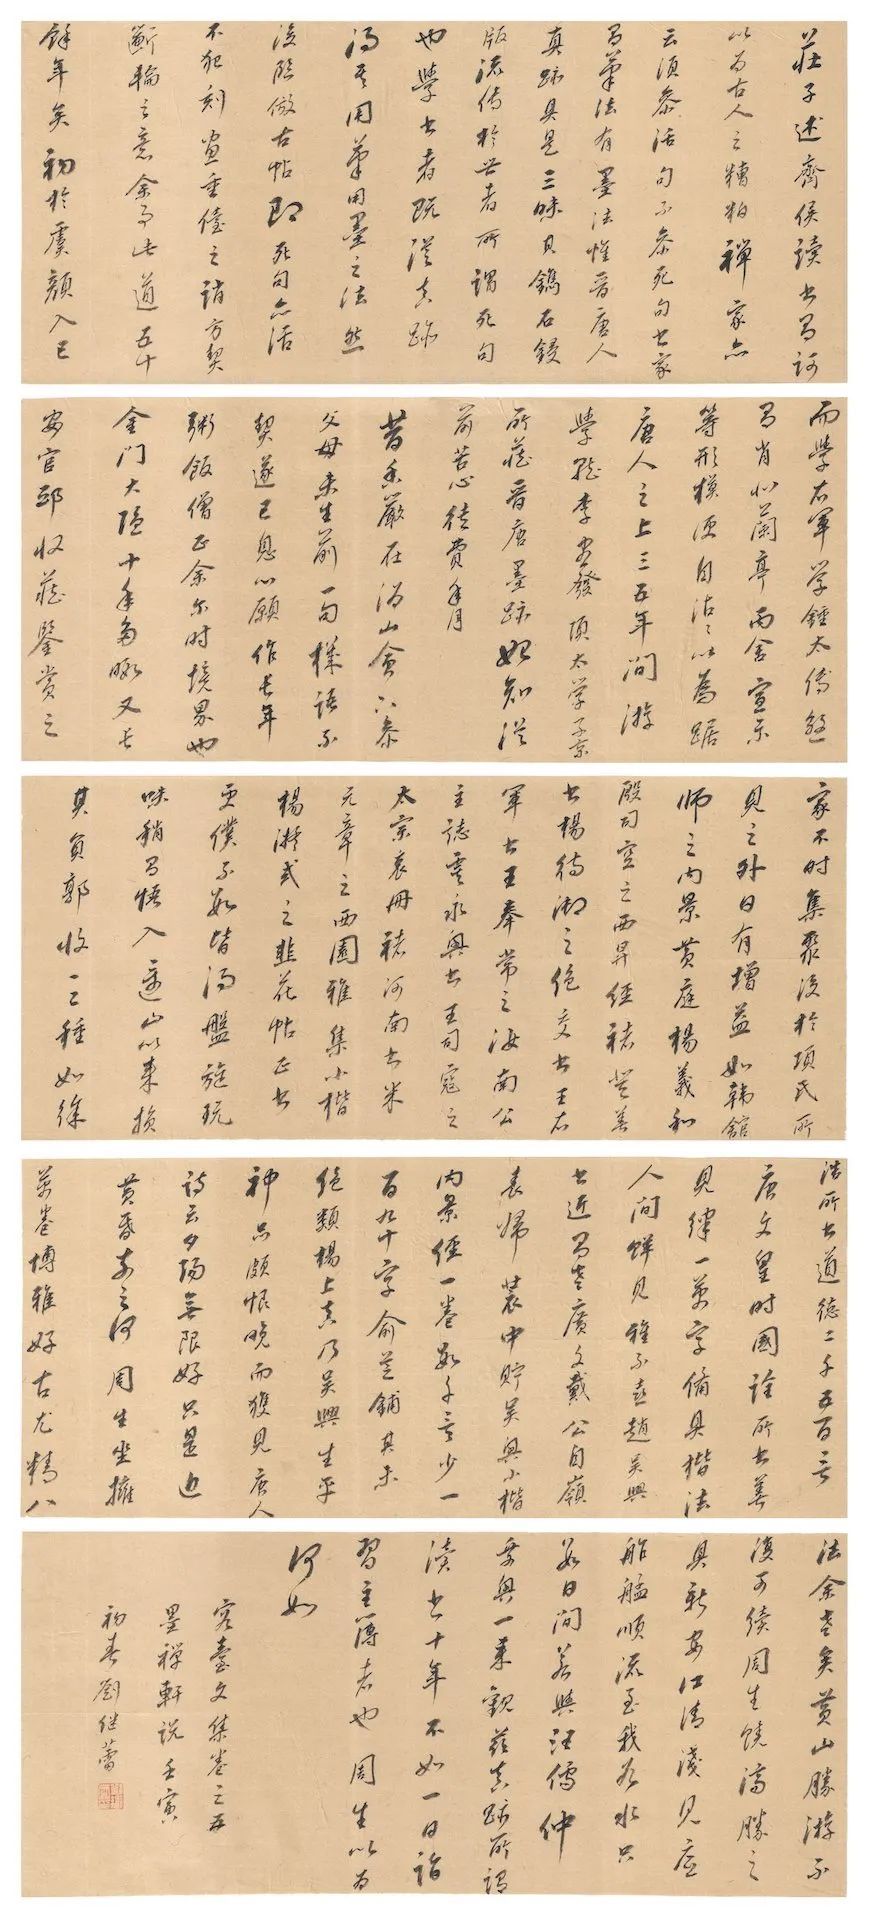 莊子述齊侯讀書曰訶
以為古人之糟粕禪家亦
云須參活句不參死句書家
有筆法有墨法惟晉唐人
真跡具是三昧其鐫石鋟
版流傳於世者所謂死句
也學書者既從真跡
得其用筆用墨之法然
後臨倣古帖即死句亦活
不犯刻畫重儓之誚方契
斲輪之意余事此道五十
餘年矣初於虞顏入已
而學右軍學鍾太傅
有肖似蘭亭丙舍宣示
等形模便自沾沾以為踞
唐人之上三五年間游
學就李盡發項太學子京
所藏晉唐墨跡始知從
前苦心徒費年月
昔香嚴在溈山會下參
父母未生前一句機語不
契遂已息心願作長年
粥飯僧正余爾時境界也
金門大隱十年多暇又長
安官邸收藏鑒賞之
家不時集聚復於項氏所
見之外日有增益如韓館
師之內景黃庭楊義和
殷司空之西昇經褚登善
書楊侍御之絕交書王右
軍書王奉常之汝南公
主誌虞永興書王司寇之
太宗哀冊褚河南書米
元章之西園雅集小楷
楊凝式之韭花帖正書
更僕不數皆得盤旋玩
味稍有悟入還山以來損
其負郭收一二種如徐
浩所書道德二千五百言
唐文皇時國詮所書善
見律一萬字備具楷法
人間鮮見雖不喜趙吳興
書近有老廣文戴公自嶺
表歸裝中貯吳興小楷
內景經一卷數千言少一
百九十字俞芝鋪其末
絕類楊上真乃吳興生平
神品頗恨晚而獲見唐人
詩云夕陽無限好只是近
黃昏奈之何周生坐擁
萬卷博雅好古尤精八
法余老矣黃山勝游不
復可續周生饒濟勝之
具新安江清淺見底
舴艋順流至我谷水只
數日間若與汪儒仲
乘興一來觀茲真跡所謂
讀書十年不如一日詣
習主簿者也周生以為
何如
容臺文集卷之五
墨禪軒說壬寅
初春劉繼蕾